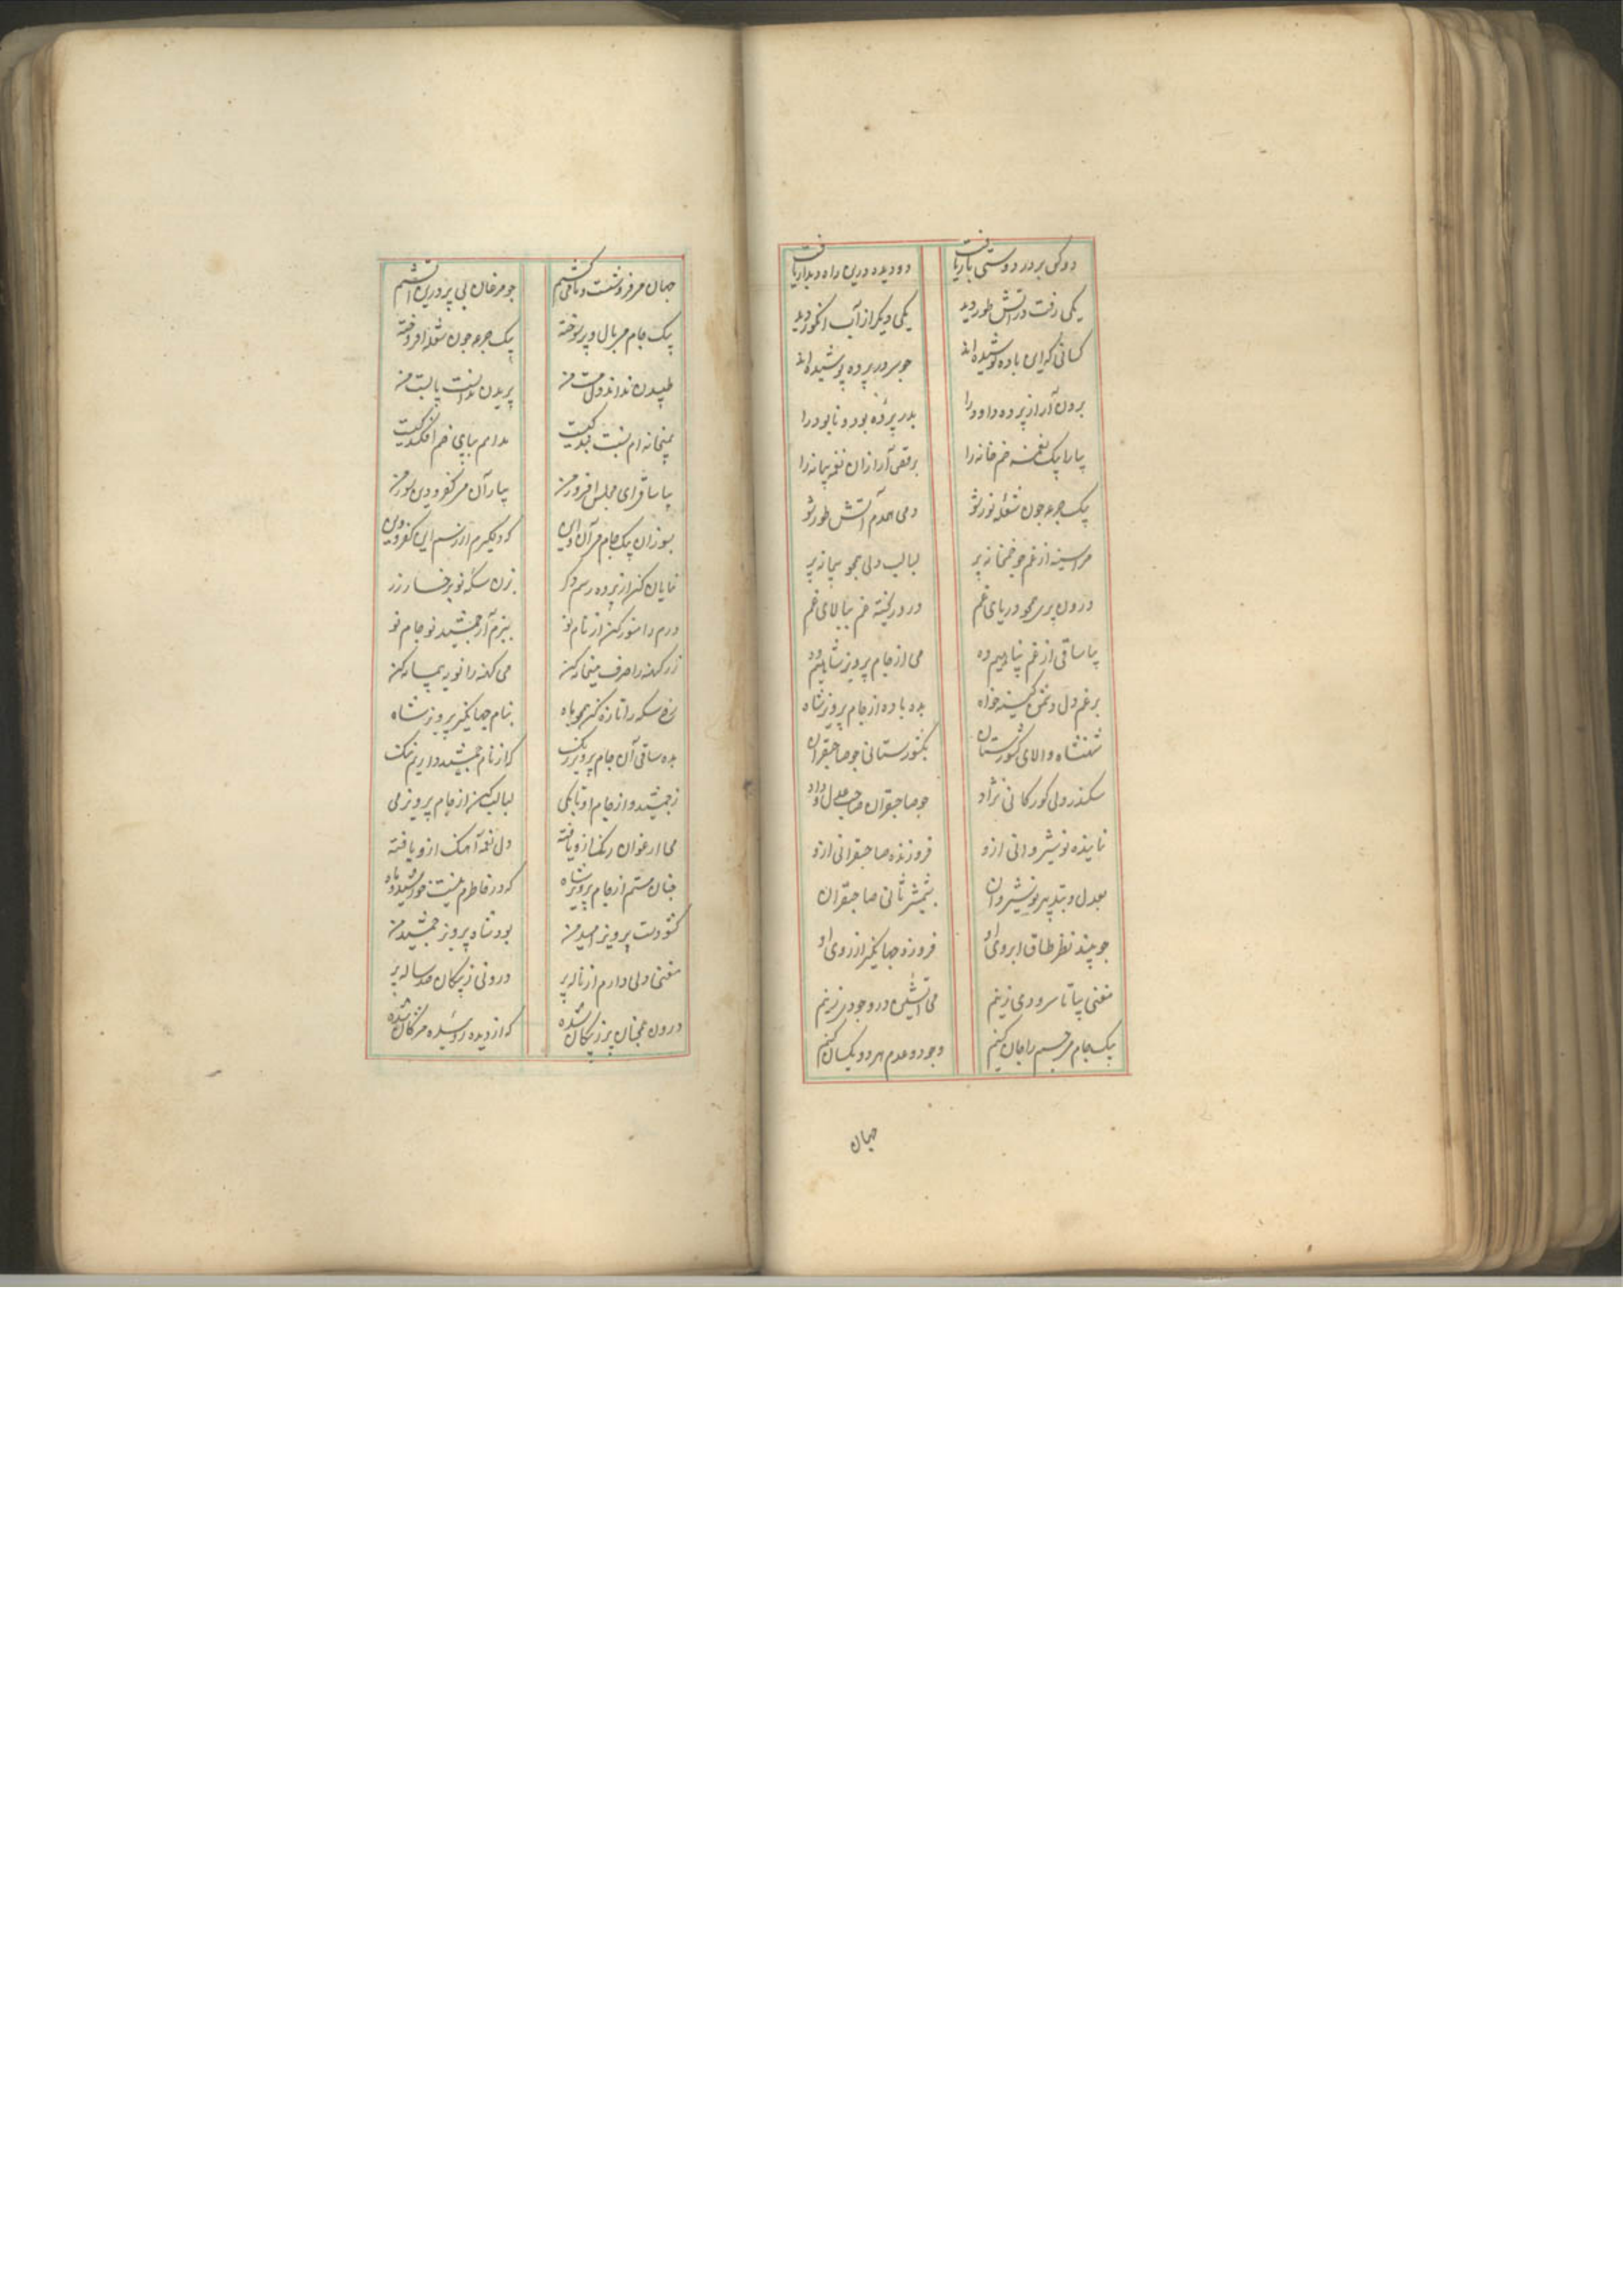 دو کس بر در دوستی بار یافت دو دیده درین راه دیدار یافت
یکی رفت در آتش طور دید یکی دیگر از آب انگور دید
کسانی که این باده نوشیده‌اند چو سر در پرده پوشیده‌اند
برون آر از پرده داود را بدر پرده بود و نابود را
بیارا بیک نغمه خم خانه را برقص آر ازان نغمه پیمانه را
بیک جرعه چون شعله نور شو دمی همدم آتش طور شو
مرا سینه از غم چو خمخانه پر لبالب دلی همچو پیمانه پر
درون پر همچو دریای غم درو ریخته غم ببالای غم
بیا ساقی از غم پناهیم ده می از جام پرویز شاهیم ده
برغم دل دشمن کینه خواه بده باده از جام پرویز شاه
شهنشاه والای کشورستان بکشورستانی چو صاحبقران
سکندر دلی کورکانی نژاد چو صاحبقران صاحب عدل و داد
نماینده نوشیروانی ازو فروزنده صاحبقرانی ازو
بعدل و بتدبیر نوشیروان بشمشیر ثانی صاحبقران
چو بیند نظر طاق ابروی او فروزد جهانگیر از روی او
مغنی بیا تا سرودی زنیم می آتشین در وجود زنیم
بیک جام می جسم را جان کنیم وجود و عدم هر دو یکسان کنیم
جهان
جهان می فروشست و ما می کشیم چو مرغان بی پر درین آتشیم
بیک جام می بال و پر سوخته بیک جرعه چون شعله افروخته
طپیدن نداند دل مست من پریدن ندانست پابست من
بمیخانه‌ام پشت کیست مدامم بپای خم افکند کیست
بیا ساقی ای مجلس افروز من بیار آن می کفر و دین سوز من
بسوزان بیک جام می آن و این که دلگیرم از رسم این کفر و دین
نمایان کن از پرده رسم دگر بزن سکه نو برخسار زر
درم را منور کن از نام نو ببزم آر جمشید نو جام نو
زر کهنه را صرف میخانه کن می کهنه را نو به پیمانه کن
رخ سکه را تازه کن همچو ماه بنام جهانگیر پرویز شاه
بده ساقی آن جام پرویز رنگ که از نام جمشید داریم ننگ
ز جمشید و از جام او تا بکی لبالب کن از جام پرویز می
می ارغوان رنگ ازو یافته دل نغمه آهنگ ازو یافته
چنان مستم از جام پرویز شاه که در خاطرم نیست خورشید و ماه
کشو دست پرویز امید من بود شاه پرویز جمشید من
مغنی دلی دارم از ناله پر درونی ز پیکان صد ساله پر
درون همچنان پر ز پیکان شده که از دیده روئیده مژگان شده